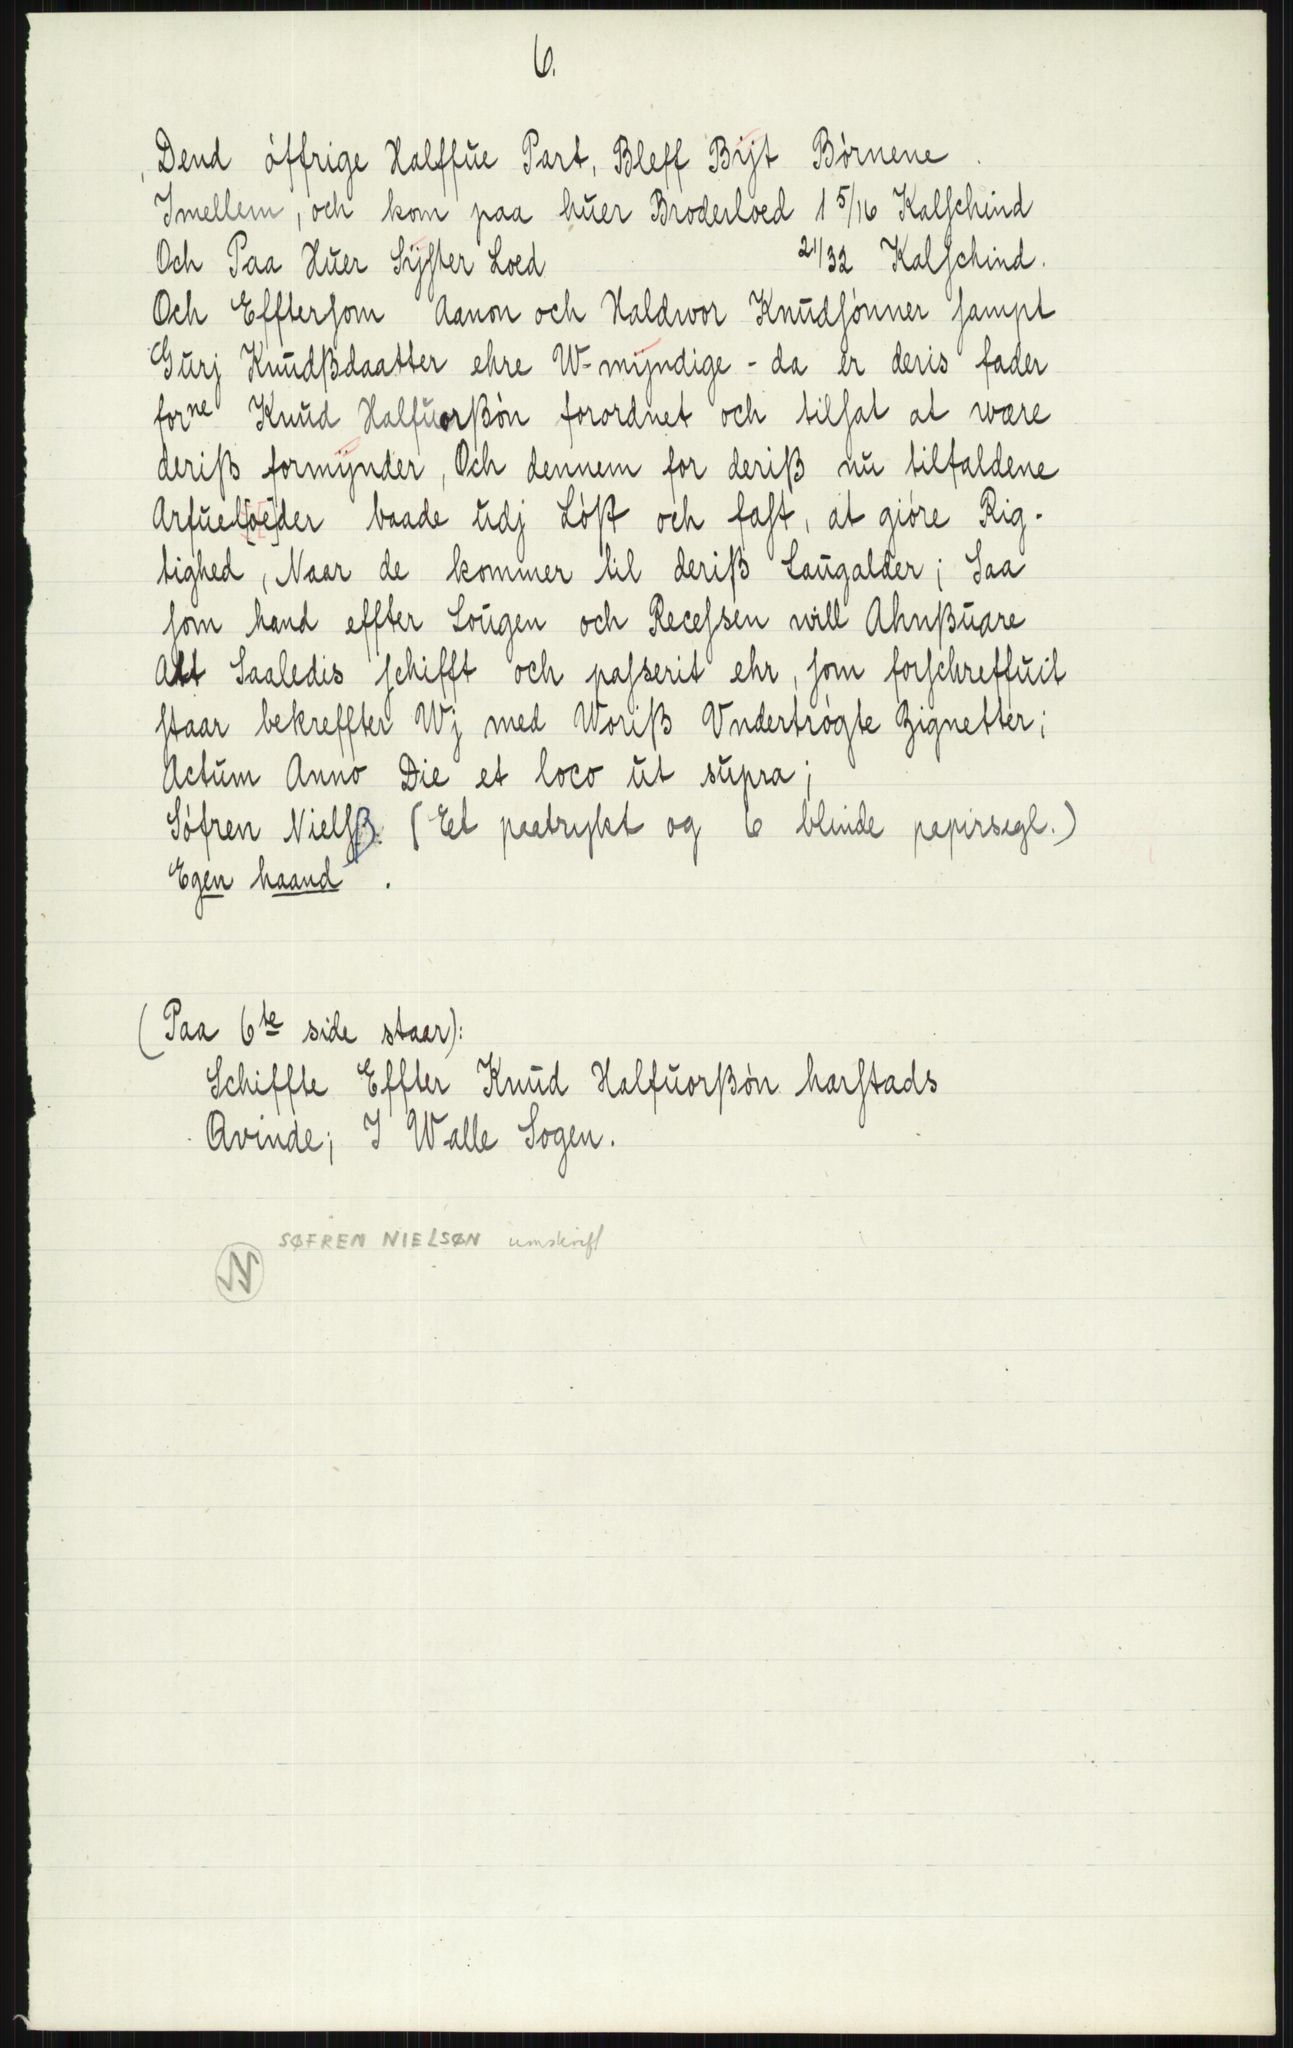 6.
Dend öffrige Halffue Part, Bleff Bijt Børnene
Imellem, och kom paa huer Broderloed 1 5/16 Kalschind
Och Paa Huer Sijster Loed 21/32 Kalschind.
Och Efftersom Aanon och Haldwor Knudsönner sampt
Gurj Knudßdaatter ehre W-mijndige - da er deris fader
forne Knud Halfuorßön forordnet och tilsat at wære
deriß formijnder, Och dennem for deriß nu tilfaldene
Arfuel[oe]der baade udj Löst och fast, at giöre Rig-
tighed, Naar de kommer til deriß Laugalder; Saa
som hand effter Lougen och Recessen will Ahnßuare
Att Saaledis schifft och passerit ehr, som forschreffuit
staar bekreffter Wj med Woriß Vndertrögte Zignetter;
Actum Anno Die et loco ut supra;
Söfren Nielsß. (Et paatrykt og 6 blinde papirsegl.)
Egen haand.
(Paa 6te side staar):
Schiffte Effter Knud Halfuorßön harstads
Qvinde; I Walle Sogen.
SØFREN NIELSØN umskrift
N